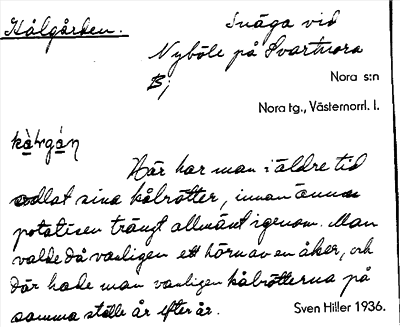 Kålgården.
Snåga vid
Nyböle på Svartnora
B;
Nora s:n
Nora tg., Västernorrl. l.
kå̀lgán
Här har man i äldre tid
odlat sina kålrötter, innan ännu
potatisen trängt allmänt igenom. Man
valde då vanligen ett hörn av en åker, och
där hade man vanligen kålrötterna på
samma ställe år efter år.
Sven Hiller 1936.